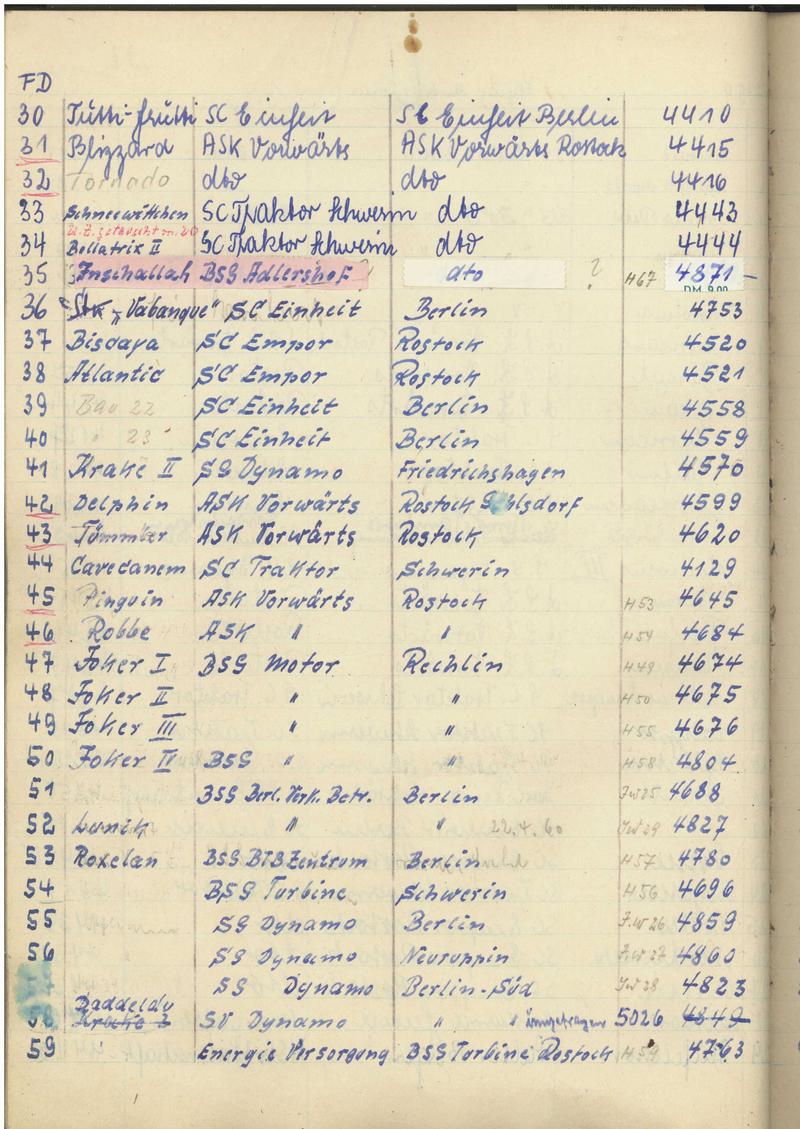 FD
30 Tutti-frutti SC Einheit SC Einheit Berlin 4410
31 Blizzard ASK Vorwärts ASK Vorwärts Rostock 4415
32 Tornado dto dto 4416
33 Schneewittchen SC Traktor Schwerin dto 4443
34 Bellatrix II SC Traktor Schwerin dto 4444
35 Inschallah BSG Adlershof ? dto ? H67 4871 –
DM 9.00
36 "Vabanque" SC Einheit Berlin 4753
37 Biscaya SC Empor Rostock 4520
38 Atlantic SC Empor Rostock 4521
39 Bau 22 SC Einheit Berlin 4558
40 " 23 SC Einheit Berlin 4559
41 Krake II SG Dynamo Friedrichshagen 4570
42 Delphin ASK Vorwärts Rostock Gehlsdorf 4599
43 Tümmler ASK Vorwärts Rostock 4620
44 Cavecanem SC Traktor Schwerin 4129
45 Pinguin ASK Vorwärts Rostock H53 4645
46 Robbe ASK " " H54 4684
47 Joker I BSG Motor Rechlin H49 4674
48 Joker II " " H50 4675
49 Joker III " " H55 4676
50 Joker IV BSG " " H58 4804
51 BSG Berl. Verk. Betr. Berlin 4688
52 Lunik " " 22.4.60 4827
53 Roxelan BSG BTB Zentrum Berlin H57 4780
54 BSG Turbine Schwerin H56 4696
55 SG Dynamo Berlin 4859
56 SG Dynamo Neuruppin 4860
SG Dynamo Berlin-Süd 4823
Daddeldu
58 Krake 3 SV Dynamo " " umgetragen 5026 4849
59 Energie Versorgung BSG Turbine Rostock H59 4763